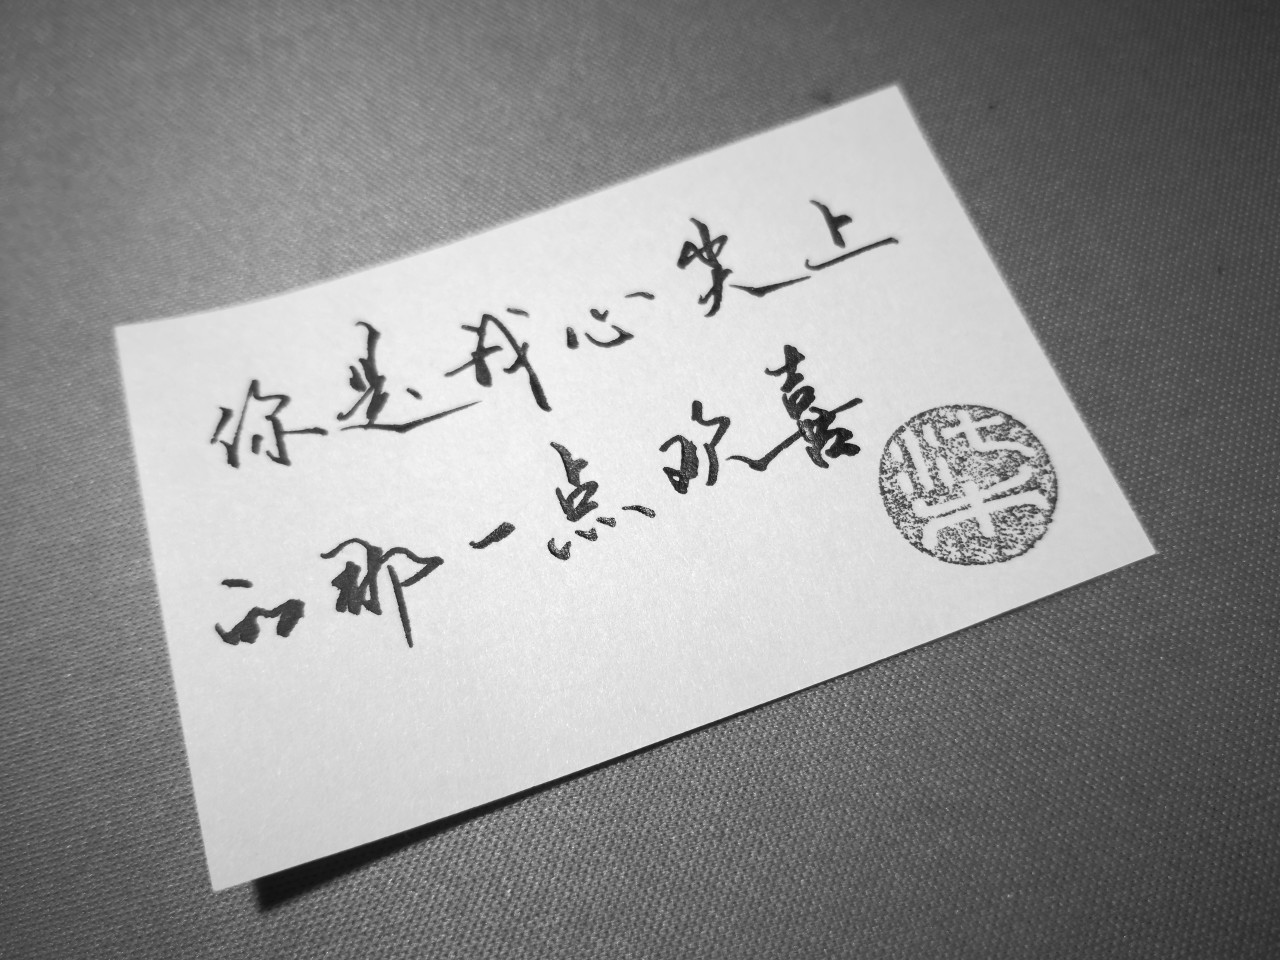 你是我心尖上
的那一点欢喜